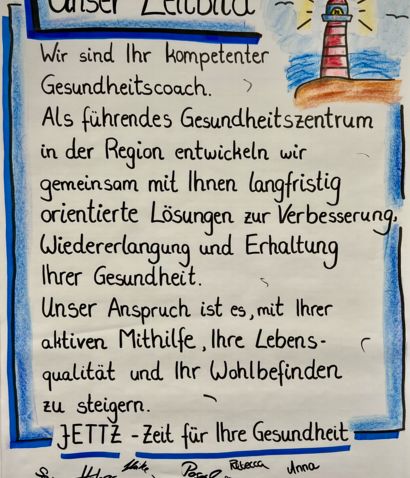 Unser Leitbild
Wir sind Ihr kompetenter
Gesundheitscoach.
Als führendes Gesundheitszentrum
in der Region entwickeln wir
gemeinsam mit Ihnen langfristig
orientierte Lösungen zur Verbesserung,
Wiedererlangung und Erhaltung
Ihrer Gesundheit.
Unser Anspruch ist es, mit Ihrer
aktiven Mithilfe, Ihre Lebens-
qualität und Ihr Wohlbefinden
zu steigern.
JETTZ - Zeit für Ihre Gesundheit
Rebecca Anna